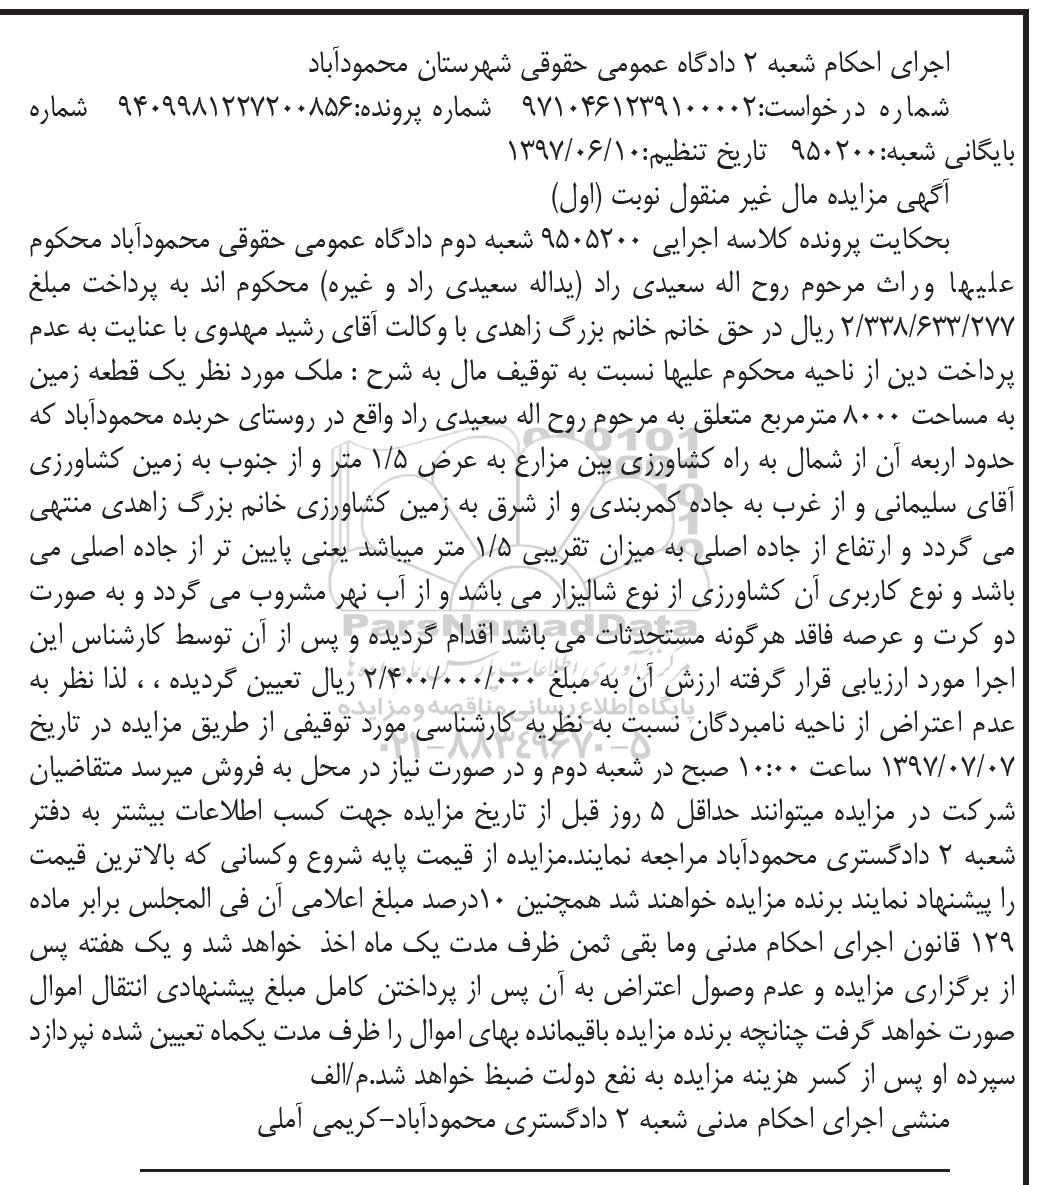 اجرای احکام شعبه ۲ دادگاه عمومی حقوقی شهرستان محمودآباد
شماره درخواست:۹۷۱۰۴۶۱۲۳۹۱۰۰۰۰۲ شماره پرونده:۹۴۰۹۹۸۱۲۲۷۲۰۰۸۵۶ شماره
بایگانی شعبه:۹۵۰۲۰۰ تاریخ تنظیم:۱۳۹۷/۰۶/۱۰
آگهی مزایده مال غیر منقول نوبت (اول)
بحکایت پرونده کلاسه اجرایی ۹۵۰۵۲۰۰ شعبه دوم دادگاه عمومی حقوقی محمودآباد محکوم
علیها وراث مرحوم روح اله سعیدی راد (یداله سعیدی راد و غیره) محکوم اند به پرداخت مبلغ
۲/۳۳۸/۶۳۳/۲۷۷ ریال در حق خانم خانم بزرگ زاهدی با وکالت آقای رشید مهدوی با عنایت به عدم
پرداخت دین از ناحیه محکوم علیها نسبت به توقیف مال به شرح : ملک مورد نظر یک قطعه زمین
به مساحت ۸۰۰۰ مترمربع متعلق به مرحوم روح اله سعیدی راد واقع در روستای حربده محمودآباد که
حدود اربعه آن از شمال به راه کشاورزی بین مزارع به عرض ۱/۵ متر و از جنوب به زمین کشاورزی
آقای سلیمانی و از غرب به جاده کمربندی و از شرق به زمین کشاورزی خانم بزرگ زاهدی منتهی
می گردد و ارتفاع از جاده اصلی به میزان تقریبی ۱/۵ متر میباشد یعنی پایین تر از جاده اصلی می
باشد و نوع کاربری آن کشاورزی از نوع شالیزار می باشد و از آب نهر مشروب می گردد و به صورت
دو کرت و عرصه فاقد هرگونه مستحدثات می باشد اقدام گردیده و پس از آن توسط کارشناس این
اجرا مورد ارزیابی قرار گرفته ارزش آن به مبلغ ۲/۴۰۰/۰۰۰/۰۰۰ ریال تعیین گردیده ، ، لذا نظر به
عدم اعتراض از ناحیه نامبردگان نسبت به نظریه کارشناسی مورد توقیفی از طریق مزایده در تاریخ
۱۳۹۷/۰۷/۰۷ ساعت ۱۰:۰۰ صبح در شعبه دوم و در صورت نیاز در محل به فروش میرسد متقاضیان
شرکت در مزایده میتوانند حداقل ۵ روز قبل از تاریخ مزایده جهت کسب اطلاعات بیشتر به دفتر
شعبه ۲ دادگستری محمودآباد مراجعه نمایند.مزایده از قیمت پایه شروع وکسانی که بالاترین قیمت
را پیشنهاد نمایند برنده مزایده خواهند شد همچنین ۱۰درصد مبلغ اعلامی آن فی المجلس برابر ماده
۱۲۹ قانون اجرای احکام مدنی وما بقی ثمن ظرف مدت یک ماه اخذ خواهد شد و یک هفته پس
از برگزاری مزایده و عدم وصول اعتراض به آن پس از پرداختن کامل مبلغ پیشنهادی انتقال اموال
صورت خواهد گرفت چنانچه برنده مزایده باقیمانده بهای اموال را ظرف مدت یکماه تعیین شده نپردازد
سپرده او پس از کسر هزینه مزایده به نفع دولت ضبظ خواهد شد.م/الف
منشی اجرای احکام مدنی شعبه ۲ دادگستری محمودآباد-کریمی آملی
ParsNamadData
پایگاه اطلاع رسانی مناقصه و مزایده
۰۲۱-۸۸۳۴۹۶۷۰-۵